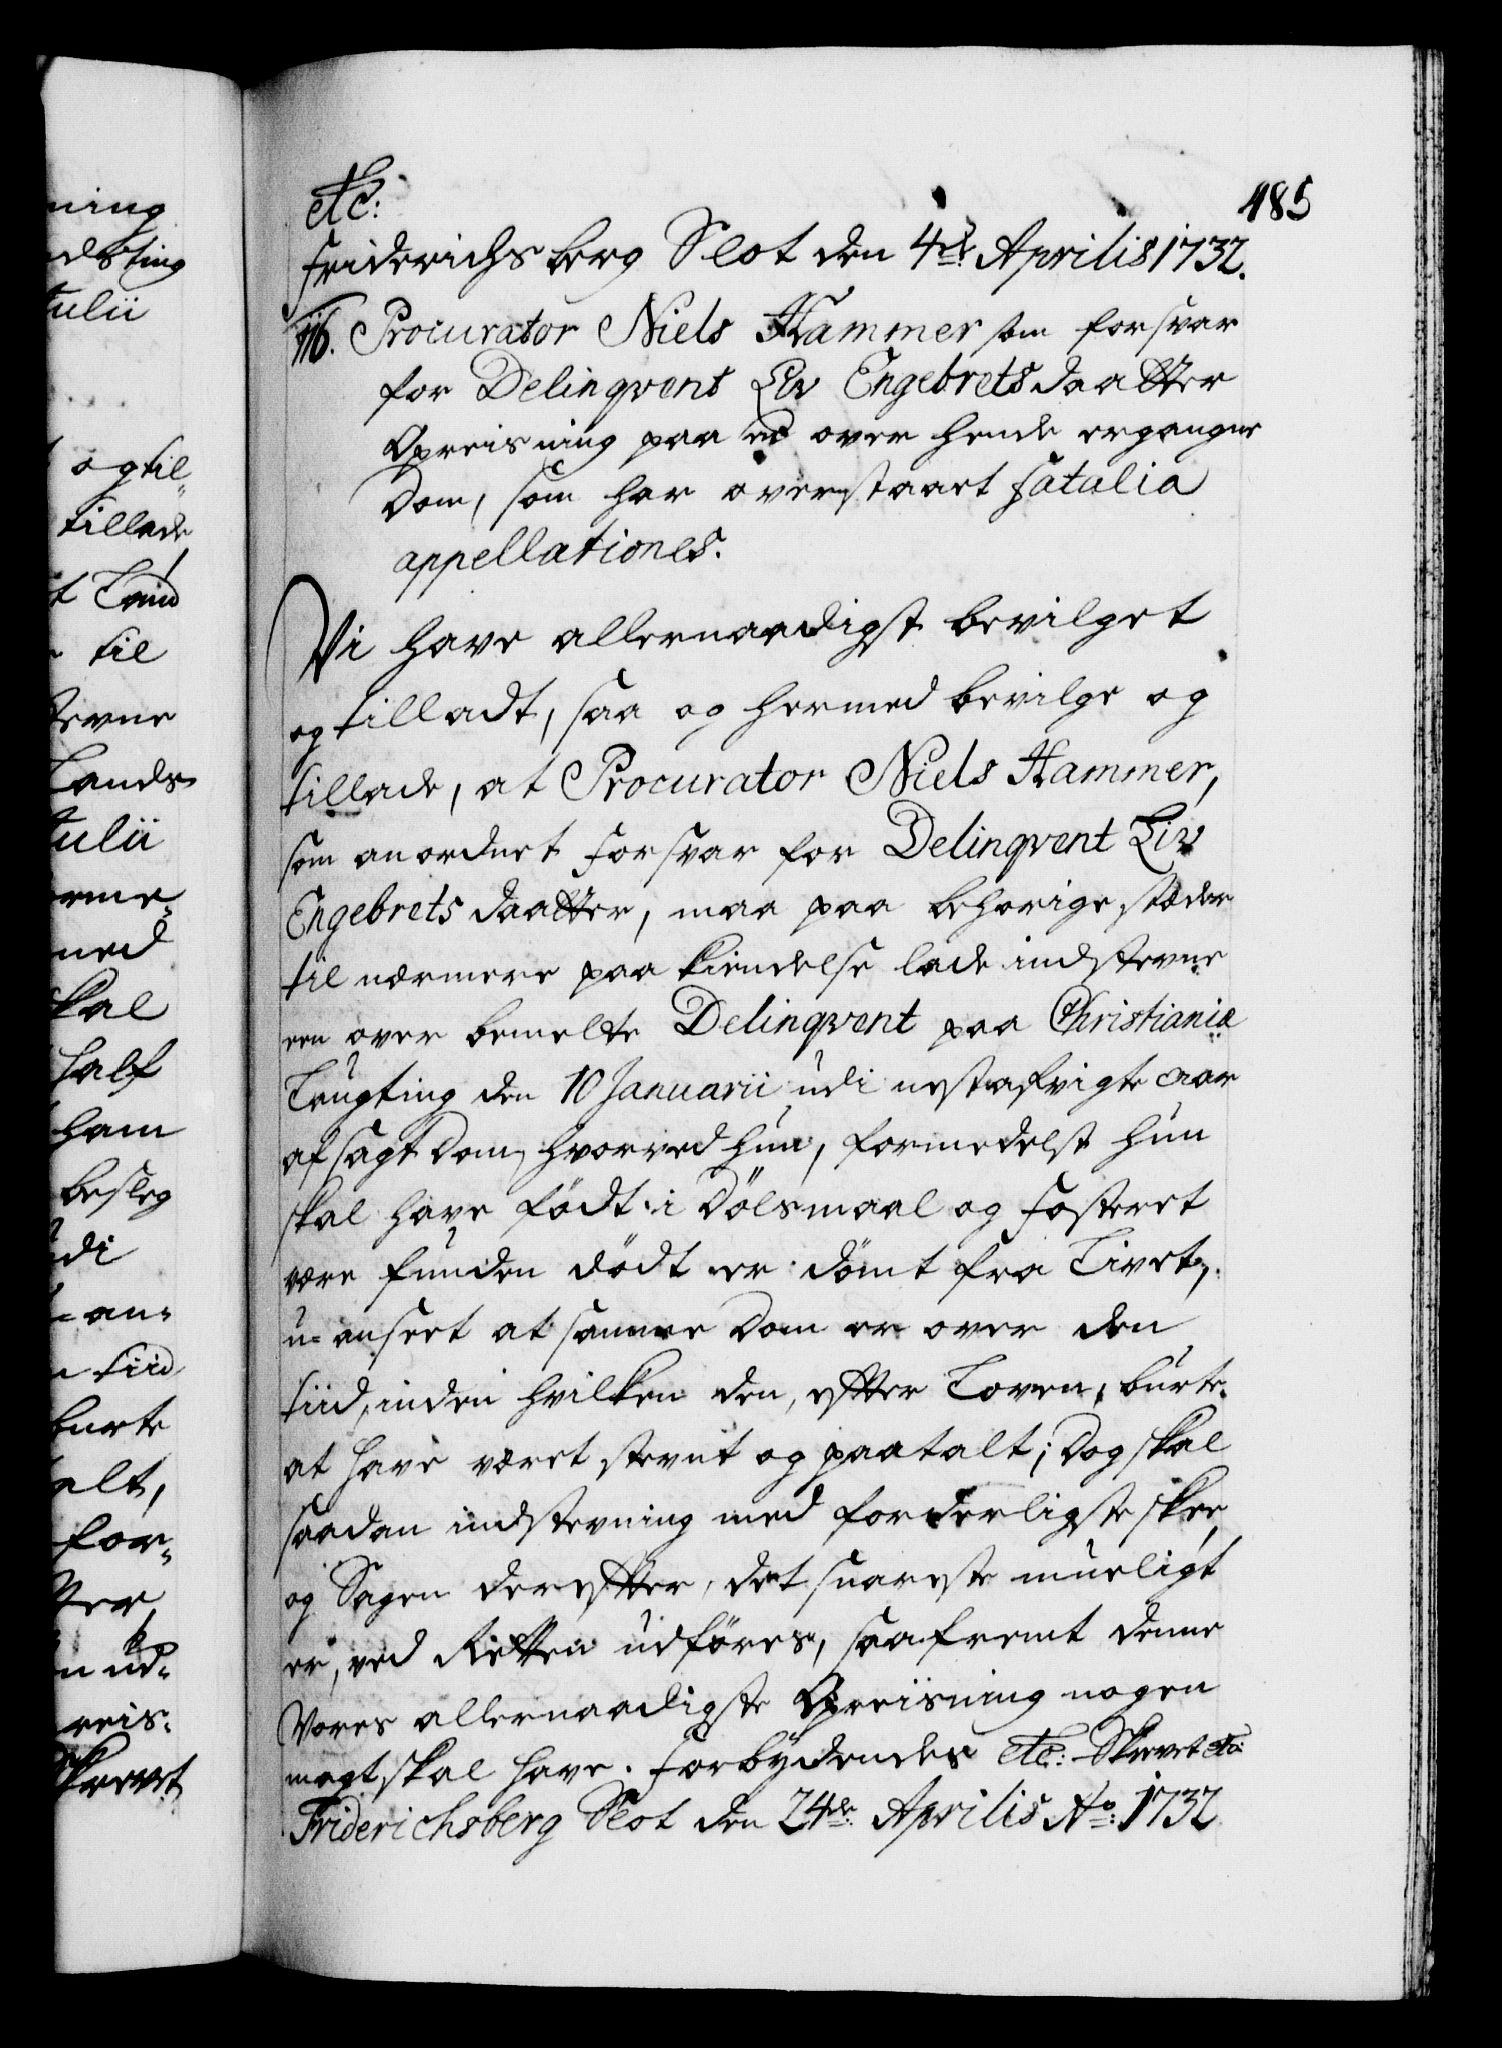 485
etc:
Friderichsberg Slot den 4de Aprilis 1732.
116. Procurator Niels Hammer som forsvar
for Delinqvent Liv Engebretsdaatter
Opreisning paa en over hende ergangne
Dom, som har overstaaet fatalia
appellationes.
Vi have allernaadigst bevilget
og tilladt, saa og hermed bevilge og
tillade, at Procurator Niels Hammer,
som anordnet forsvar for Delinqvent Liv
Engebretsdaatter, maa paa behørige stæder
til nærmere paa kiendelse lade indstevne
een over bemelte Delinqvent paa Christiania
Laugting den 10 Januarii udi nestafvigte aar
afsagt Dom, hvorved hun, formedelst hun
skal have födt i Dölsmaal og fosteret
være funden dödt er dömt fra Livet,
u-anseet at samme Dom er over den
tiid, inden hvilken den, efter Loven, burte
at have været stevnt og paatalt; Dog skal
saadan indstevning med forderligste skee,
og Sagen derefter, det snareste mueligt
er, ved Retten udføres, saafremt denne
Vores allernaadigste Opreisning nogen
magt skal have. Forbydendes etc: Skrevet etc:
Friderichsberg Slot den 24de Aprilis Ao: 1732
ning
dsting
tulii
og til-
tillade
til
tevne
Lands
tulii
ned
skal
half
ham
besleg
udi
an-
tiid
burte
alt,
for-
ud-
reis-
Skrevet